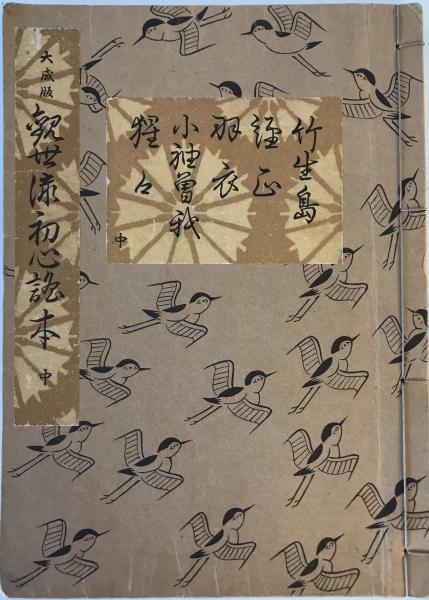 竹生島
經正
羽衣
小袖曽我
猩々
中
大成版
觀世流初心謠本 中